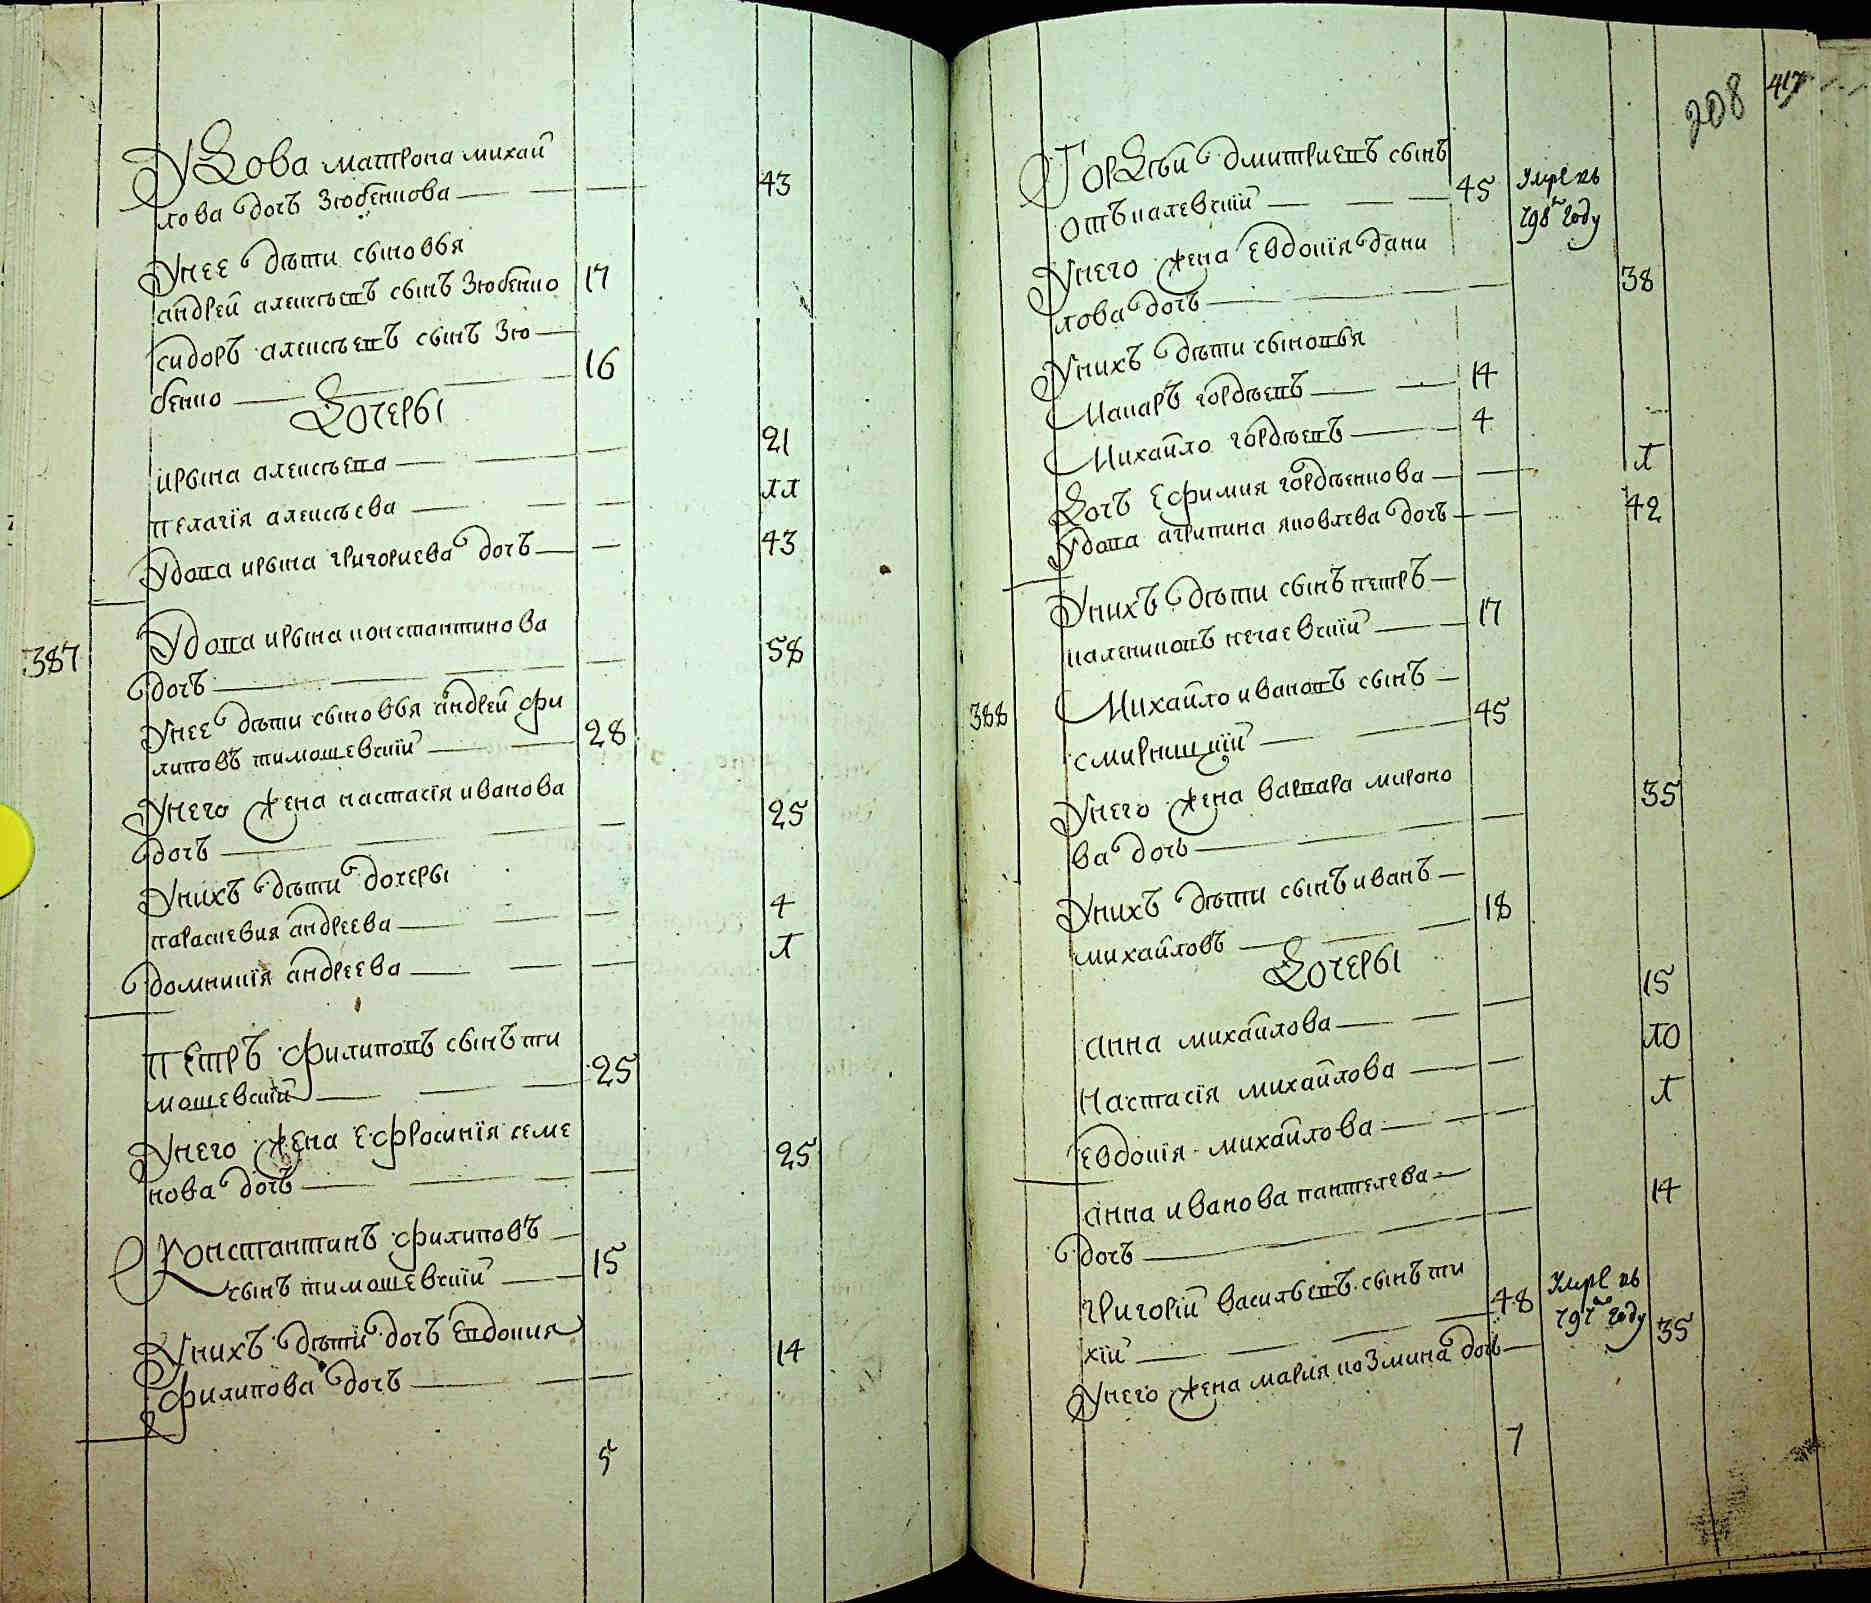 Удова матрона михаи
лова дочь Зюбенкова 43
Унее дѣти сыновья
андрей алексѣевъ сынъ Зюбенко 17
сидоръ алексѣевъ сынъ Зю
бенко 16
Дочеры
ирына алексѣева 21
пелагія алексѣева 11
Удова ирына григориева дочь 43
387 Удова ирына константинова
дочь 58
Унее дѣти сыновья андрей фи
липовъ тимошевский 28
Унего жена настасія иванова
дочь 25
Унихъ дѣти дочеры
параскевия андреева 4
домникія андреева 1
петръ филиповъ сынъ ти
мошевский 25
Унего жена ефросинія семе
нова дочь 25
Константинъ филиповъ
сынъ тимошевский 15
Унихъ дѣти дочь евдокия
филипова дочь 14
5
208 417
Гордѣй дмитриевъ сынъ
45 Умре въ
798м году
Унего жена Евдокія дани
лова дочь 38
Унихъ дѣти сыновья
Макаръ гордѣевъ 14
Михайло гордѣевъ 4
Дочь Ефимия гордѣенкова 1
Удова агрипина яковлева дочь 42
Унихъ дѣти сынъ петръ
калениковъ нечаевский 17
388 Михайло ивановъ сынъ
смирницкій 45
Унего жена варвара мироно
ва дочь 35
Унихъ дѣти сынъ иванъ
михайловъ 18
Дочеры
анна михайлова 15
Настасія михайлова 10
евдокія михайлова 1
анна иванова пантелева
дочь 14
григорій васильевъ сынъ ти
хій 48 Умре въ
797мъ году
Унего жена мария козмина дочь 35
7